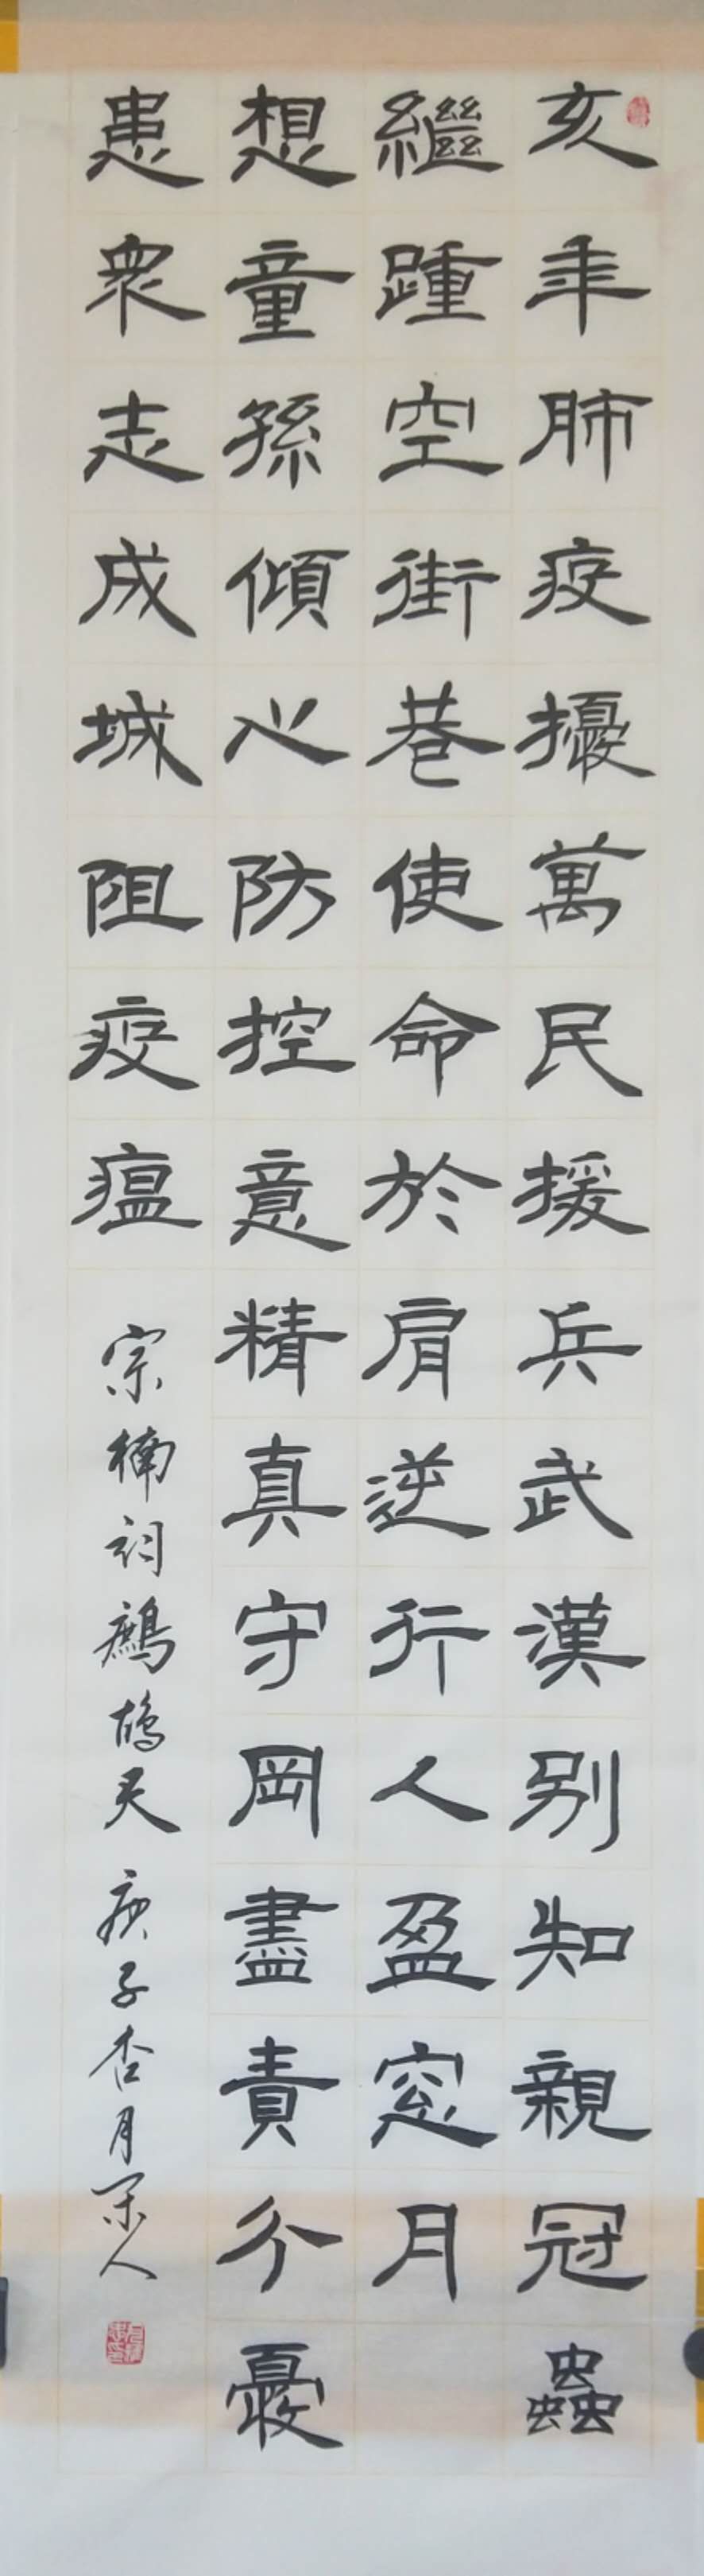 亥年肺疫擾萬民援兵武漢別知親冠蟲
繼踵空街巷使命於肩逆行人盈窓月
想童孫傾心防控意精真守岡盡責分憂
患眾志成城阻疫瘟
宗楠詞鷓鴣天 庚子杏月 人